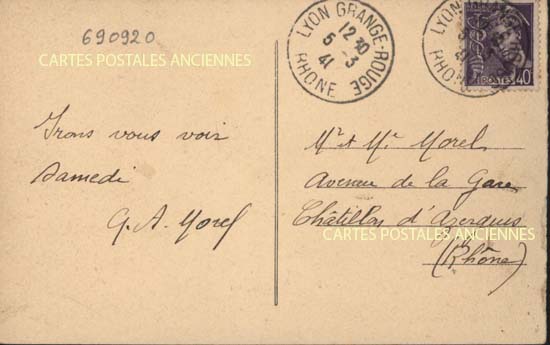 690920
CARTES POSTALES ANCIENNES
LYON GRANGE-ROUGE
12-30
5-3
41
RHONE
LYON
RHONE
POSTES
40
Irons vous voir
Samedi
G. A. Morel
Mr et Me Morel
Avenue de la Gare
Châtillon d'Azergues
CARTES POSTALES ANCIENNES
(Rhône)